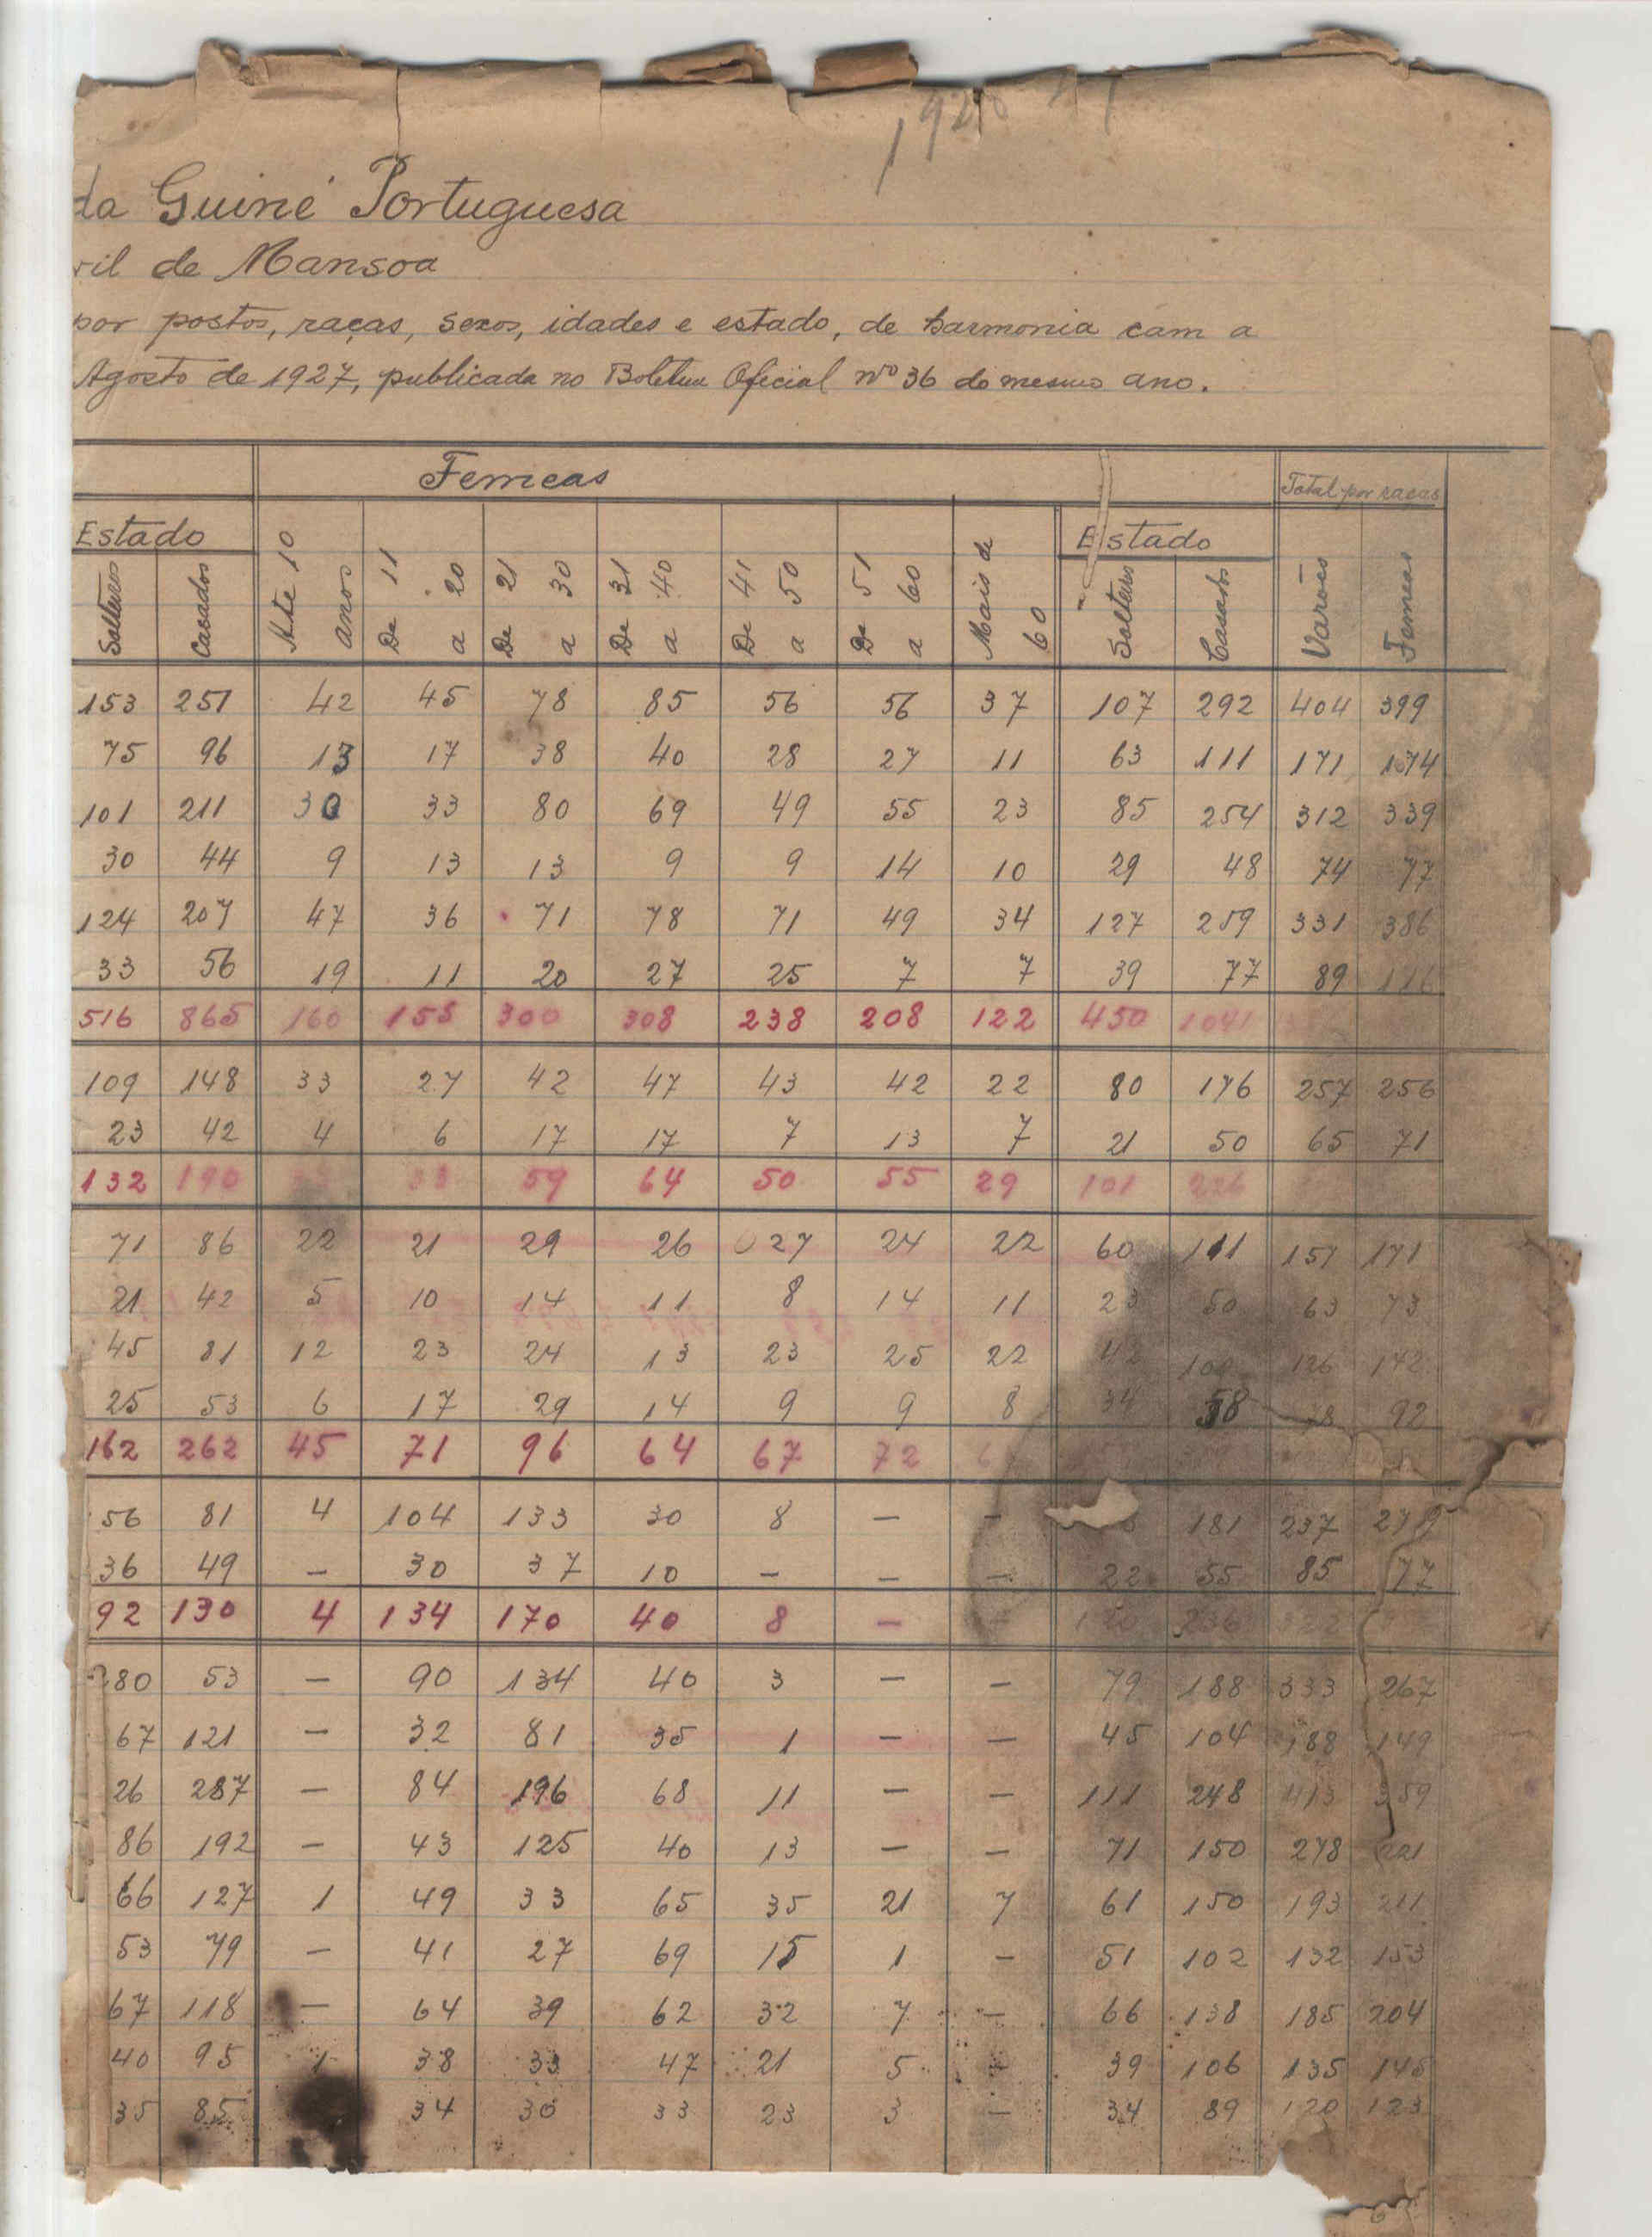 da Guiné Portuguesa
vil de Mansoa
por postos, raças, sexos, idades e estado, de harmonia com a
Agosto de 1927, publicada no Boletim Oficial nº 36 do mesmo ano.
Femeas Total por raças
Estado Até 10 anos De 11 a 20 De 21 a 30 De 31 a 40 De 41 a 50 De 51 a 60 Mais de 60 Estado Varões Femeas
Solteiros Casados Solteiros Casados
153 251 42 45 78 85 56 56 37 107 292 404 399
75 96 13 17 38 40 28 27 11 63 111 171 174
101 211 30 33 80 69 49 55 23 85 254 312 339
30 44 9 13 13 9 9 14 10 29 48 74 77
124 207 47 36 71 78 71 49 34 127 259 331 386
33 56 19 11 20 27 25 7 7 39 77 89 116
516 865 160 155 300 308 238 208 122 450 1041
109 148 33 27 42 47 43 42 22 80 176 257 256
23 42 4 6 17 17 7 13 7 21 50 65 71
132 190 33 59 64 50 55 29 101 226
71 86 22 21 29 26 27 24 22 60 111 157 171
21 42 5 10 14 11 8 14 11 23 50 63 73
45 81 12 23 24 13 23 25 22 42 100 126 142
25 53 6 17 29 14 9 9 8 34 58 78 92
162 262 45 71 96 64 67 72
56 81 4 104 133 30 8 — — 181 237 279
36 49 — 30 37 10 — — — 22 55 85 77
92 130 4 134 170 40 8 — 236 322
280 53 — 90 134 40 3 — — 79 188 333 267
67 121 — 32 81 35 1 — — 45 104 188 149
26 287 — 84 196 68 11 — — 111 248 413 359
86 192 — 43 125 40 13 — — 71 150 278 221
66 127 1 49 33 65 35 21 7 61 150 193 211
53 79 — 41 27 69 15 1 — 51 102 132 153
67 118 — 64 39 62 32 7 — 66 138 185 204
40 95 1 38 33 47 21 5 — 39 106 135 145
35 85 34 30 33 23 3 — 34 89 120 123